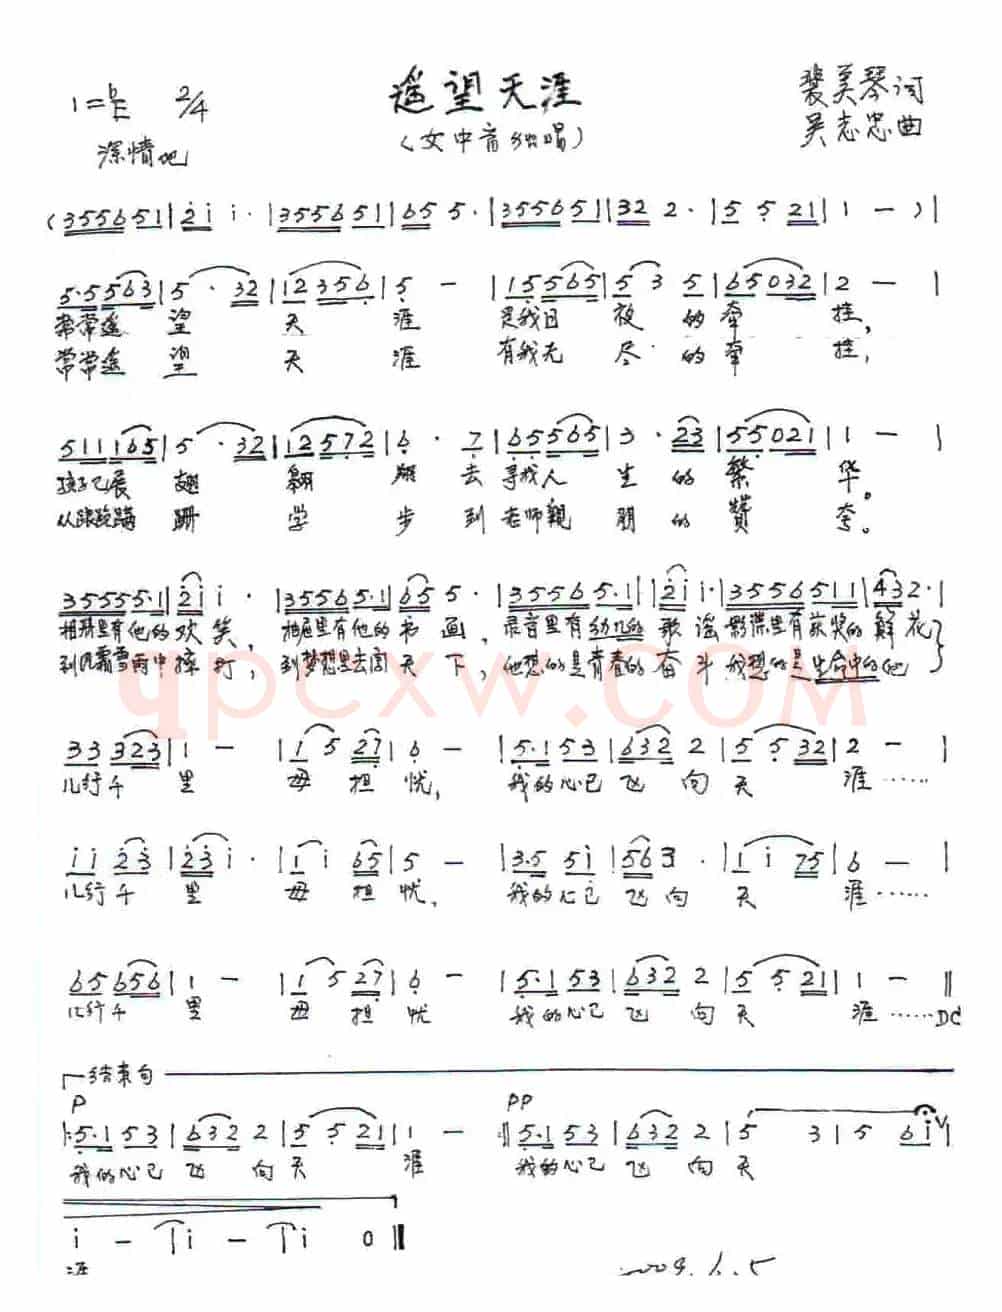 1=♭E 2/4
遥望天涯
裴美琴词
(女中音独唱)
吴志忠曲
深情地
(355651|2i i·|355651|65 5·|355651|32 2·|5 5 21|1 —)|
5·5563|5·32|12356|5 —|15565|5 3 5|65032|2 —|
常常遥望天涯 是我日夜的牵挂,
常常遥望天涯 有我无尽的牵挂,
511165|5·32|12572|6·7|65565|3·23|55021|1 —|
孩子已展翅翱翔去寻找人生的繁华。
从踉跄蹒跚学步到老师亲朋的赞夸。
355555·1|2i i·|35565·1|65 5·|35565·1|2i i·|35565 11|432·|
相册里有他的欢笑,抽屉里有他的书画,录音里有幼儿的歌谣影碟里有获奖的鲜花
到风霜雪雨中摔打,到梦想里去闯天下,他想的是青春的奋斗我想的是生命中的他
33 323|1 —|1 5 27|6 —|5·153|632 2|5 5 32|2 —|
儿行千里母担忧,我的心已飞向天涯……
ii 23|23i·|1 i 65|5 —|3·5 5i|563·|1 i 75|6 —|
儿行千里母担忧,我的心已飞向天涯……
65656|1 —|1 5 27|6 —|5·153|632 2|5 5 21|1 —‖
儿行千里母担忧 我的心已飞向天涯……DC
结束句
P PP
‖:5·153|632 2|5 5 21|1 — :‖5·153|632 2|5 3|5 6i V|
我的心已飞向天涯 我的心已飞向天
i — |i — |i 0‖
涯
2009.6.5
qpcxw.COM